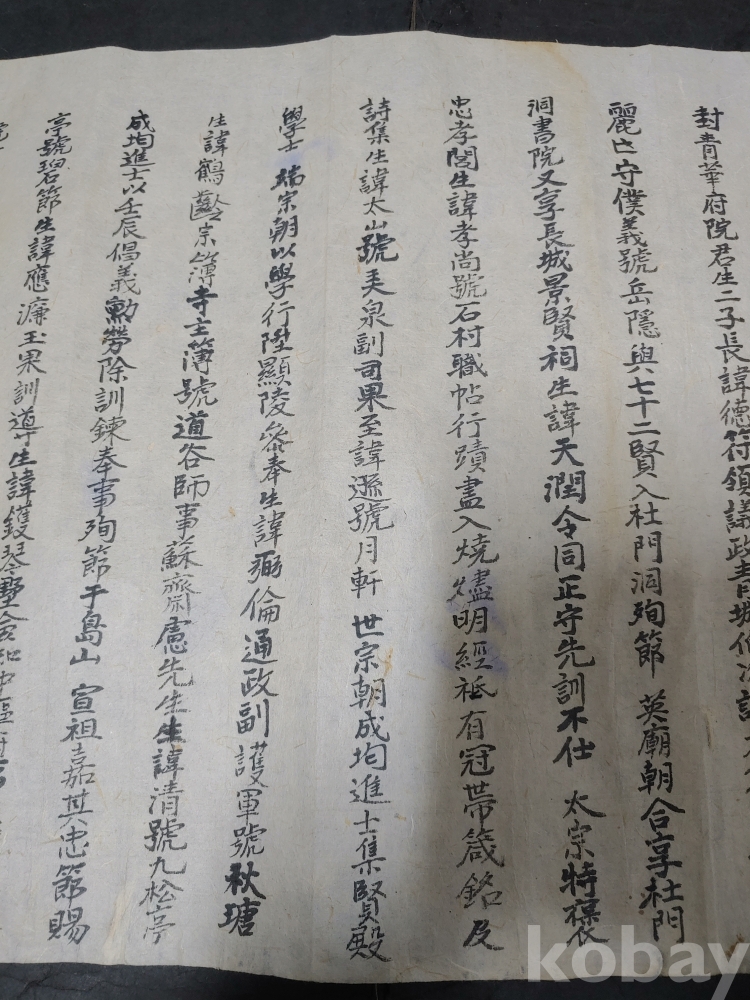 封青華府院君生二子長諱德符領議政青城伯次諱
麗亡守僕義號岳隱與七十二賢入杜門洞殉節 英廟朝合享杜門
洞書院又享長城景賢祠生諱天潤令同正守先訓不仕 太宗特褒
忠孝閭生諱孝尚號石村職帖行蹟盡入燒燼明經祗有冠帶箴銘及
詩集生諱太山號美泉副司果至諱遜號月軒 世宗朝成均進士集賢殿
學士 端宗朝以學行陞顯陵參奉生諱彌倫通政副護軍號秋瑭
生諱鶴齡宗簿寺主簿號道谷師事蘇齋盧先生生諱清號九松亭
成均進士以壬辰倡義勳勞除訓鍊奉事殉節于島山 宣祖嘉其忠節賜
亭號碧節生諱應濂玉果訓導生諱鑊琴墅僉知中樞府
kobay